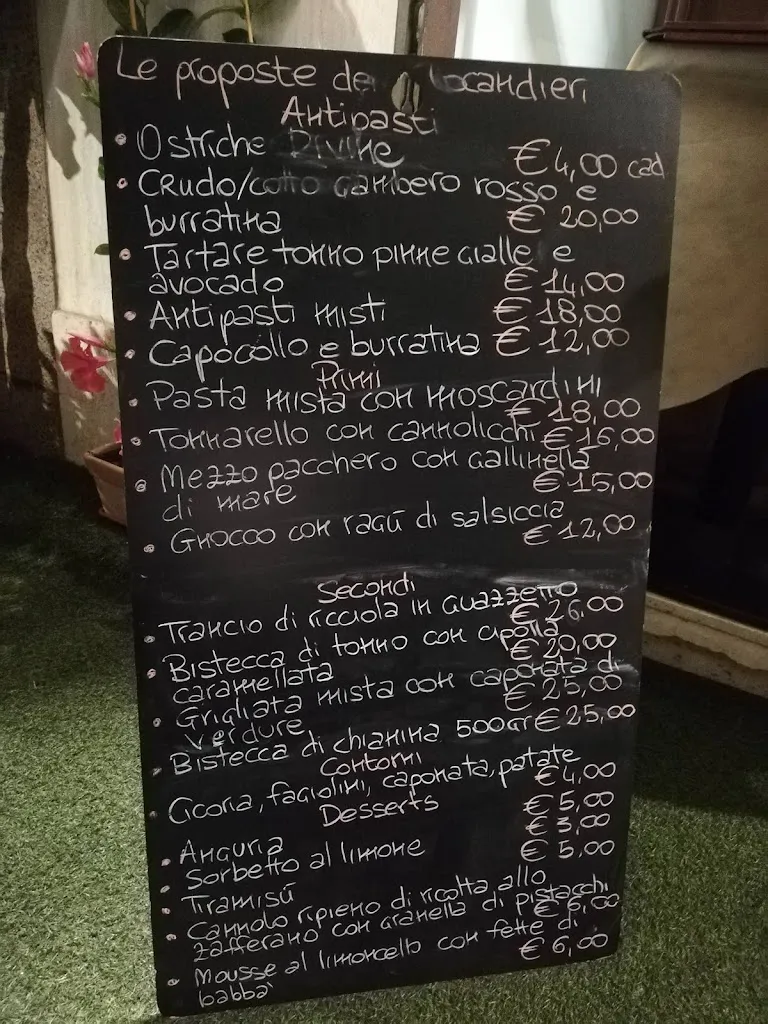 Le proposte dei Locandieri
Antipasti
• Ostriche Divine € 4,00 cad
• Crudo/cotto gambero rosso e
burratina € 20,00
• Tartare tonno pinne gialle e
avocado € 14,00
• Antipasti misti € 18,00
• Capocollo e burratina € 12,00
Primi
• Pasta mista con moscardini
€ 18,00
• Tonnarello con cannolicchi € 16,00
• Mezzo pacchero con gallinella
di mare € 15,00
• Gnocco con ragú di salsiccia
€ 12,00
Secondi
• Trancio di ricciola in guazzetto
€ 26,00
• Bistecca di tonno con cipolla
caramellata € 20,00
• Grigliata mista con caponata di
verdure € 25,00
• Bistecca di chianina 500gr € 25,00
Contorni
• Cicoria, fagiolini, caponata, patate
€ 4,00
Desserts
• Anguria € 5,00
• Sorbetto al limone € 3,00
• Tiramisú € 5,00
• Cannolo ripieno di ricotta allo
zafferano con granella di pistacchi
€ 6,00
• Mousse al limoncello con fette di
babba' € 6,00